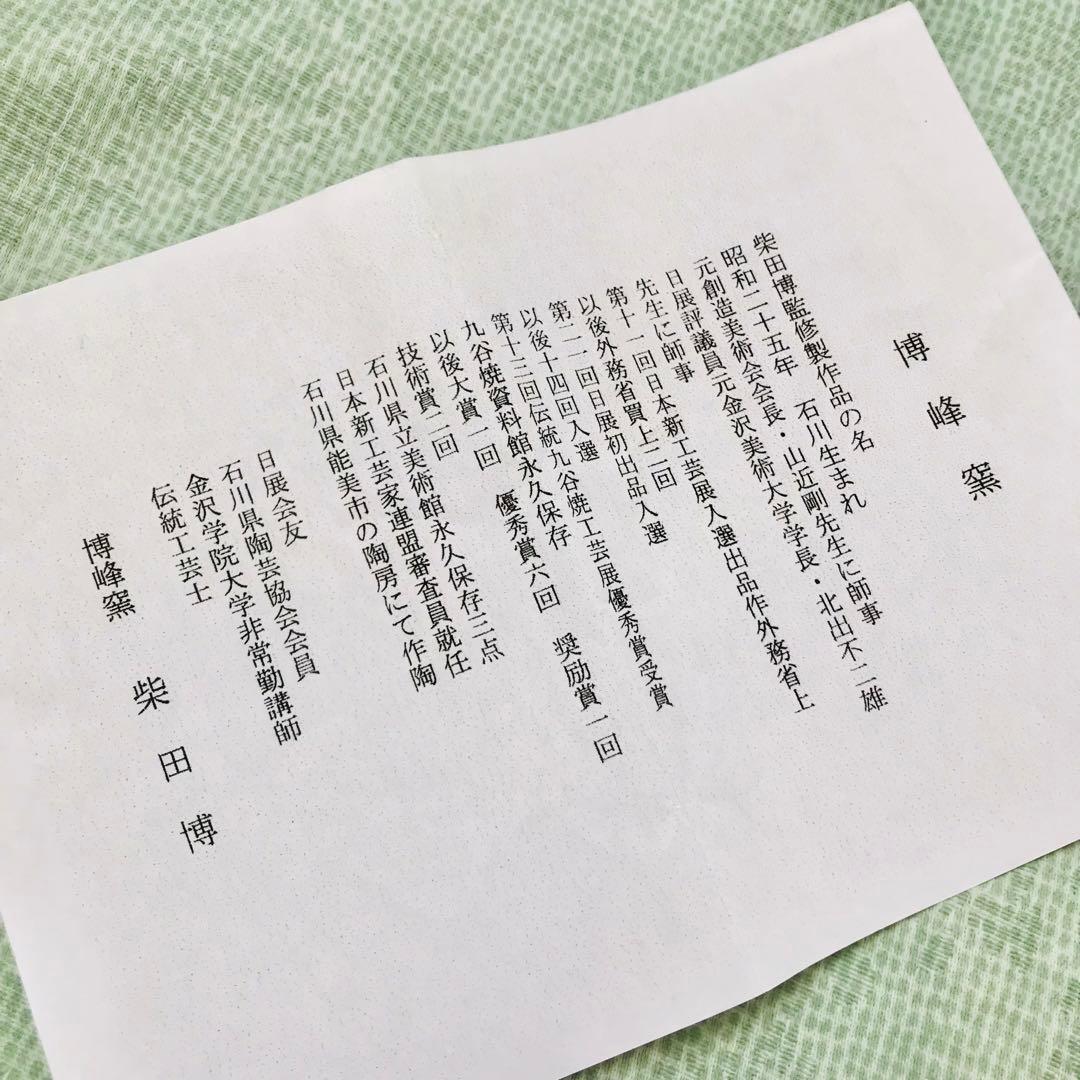 博峰窯
柴田博監修製作品の名
昭和二十五年　石川生まれ
元創造美術会会長・山近剛先生に師事
日展評議員元金沢美術大学学長・北出不二雄
先生に師事
第十一回日本新工芸展入選出品作外務省上
以後外務省買上二回
第二一回日展初出品入選
以後十四回入選
第十三回伝統九谷焼工芸展優秀賞受賞
九谷焼資料館永久保存
以後大賞一回　優秀賞六回　奨励賞一回
技術賞二回
石川県立美術館永久保存三点
日本新工芸家連盟審査員就任
石川県能美市の陶房にて作陶
日展会友
石川県陶芸協会会員
金沢学院大学非常勤講師
伝統工芸士
博峰窯　柴田博